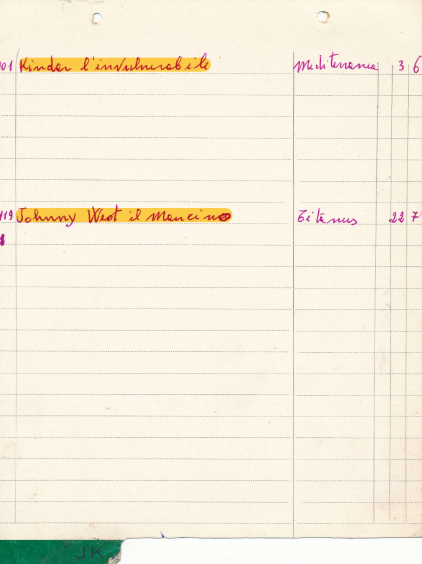 01 Kindar l'invulnerabile Mediterranea 3 6
119 Johnny West il Mancino Titanus 22 7
JK